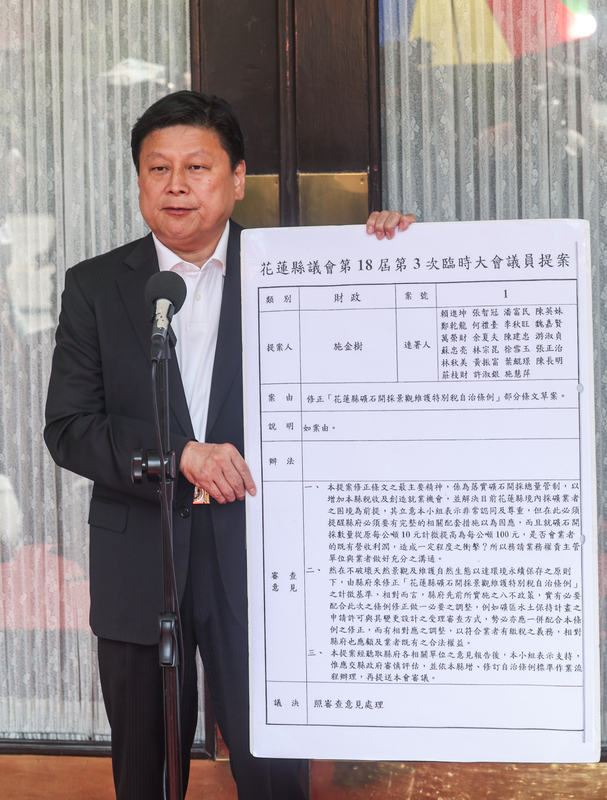 花蓮縣議會第18屆第3次臨時大會議員提案
類別 財政 案號 1
提案人 施金樹 連署人
賴進坤 張智冠 潘富民 陳英妹
鄭乾龍 何禮臺 李秋旺 魏嘉賢
萬榮財 余夏夫 陳建忠 游淑貞
蘇忠亮 林宗昆 徐雪玉 張正治
林秋美 黃振富 葉鯤璟 陳長明
莊枝財 許淑銀 施慧萍
案由 修正「花蓮縣礦石開採景觀維護特別稅自治條例」部分條文草案。
說明 如案由。
辦法
審查意見
一、本提案修正條文之最主要精神，係為落實礦石開採總量管制，以
增加本縣稅收及創造就業機會，並解決目前花蓮縣境內採礦業者
之困境為前提，其立意本小組表示非常認同及尊重，但在此必須
提醒縣府必須要有完整的相關配套措施以為因應，而且就礦石開
採數量從原每公噸10元計徵提高為每公噸100元，是否會業者
的既有營收利潤，造成一定程度之衝擊？所以務請業務權責主管
單位與業者做好充分之溝通。
二、然在不破壞天然景觀及維護自然生態以達環境永續保存之原則
下，由縣府來修正「花蓮縣礦石開採景觀維護特別稅自治條例」
之計徵基準，相對而言，縣府先前所實施之八不政策，實有必要
配合此次之條例修正做一必要之調整，例如礦區水土保持計畫之
申請許可與其變更設計之受理審查方式，勢必亦應一併配合本條
例之修正，而有相對應之調整，以符合業者有繳稅之義務，相對
縣府也應顧及業者既有之合法權益。
三、本提案經聽取縣府各相關單位之意見報告後，本小組表示支持，
惟應交縣政府審慎評估，並依本縣增、修訂自治條例標準作業流
程辦理，再提送本會審議。
議決 照審查意見處理